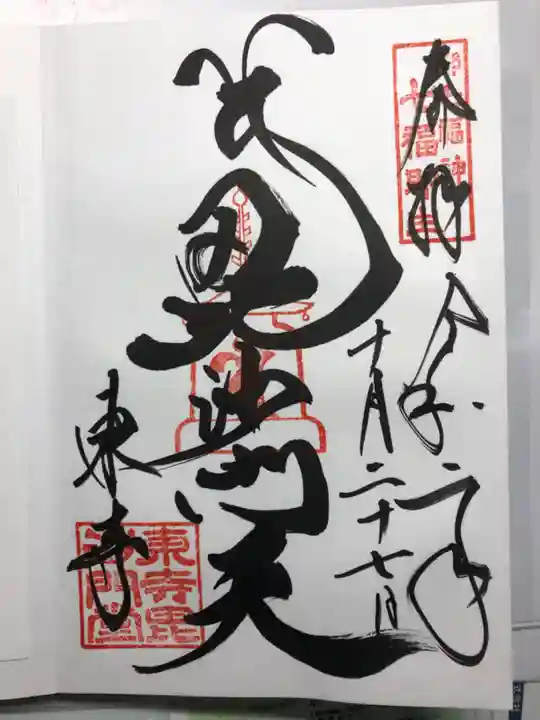 奉拝
令和二年
十月二十七日
毘沙門天
東寺
東寺毘
沙門堂